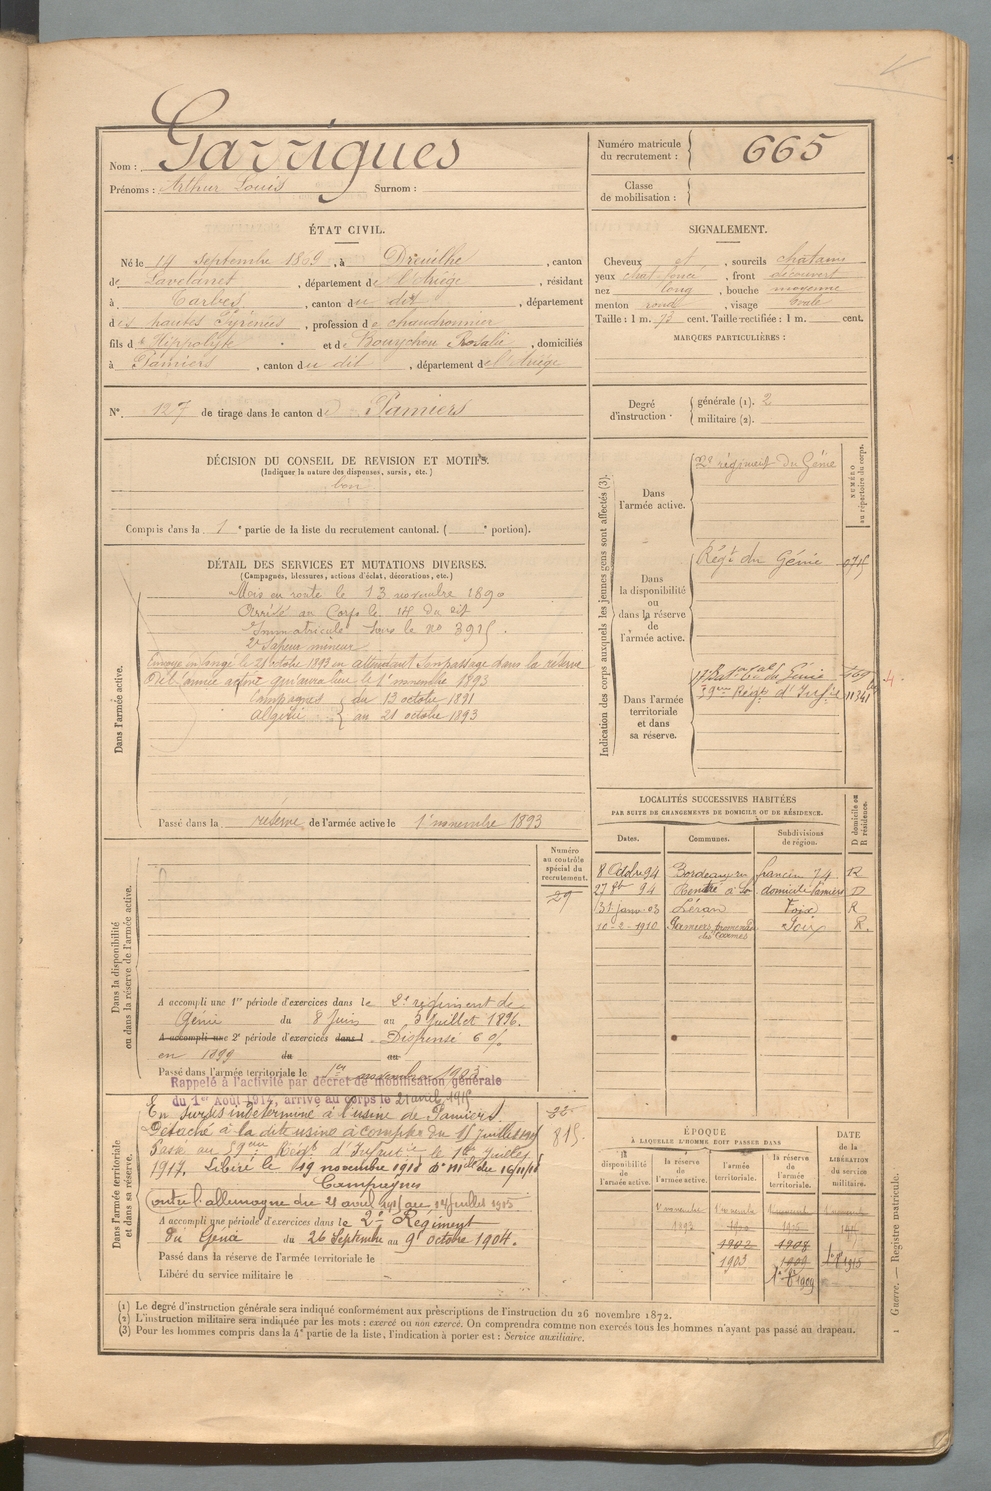 Nom : Garrigues
Prénoms : Arthur Louis Surnom :
Numéro matricule du recrutement : 665
Classe de mobilisation :
ÉTAT CIVIL.
Né le 14 Septembre 1869, à Dreuilhe, canton
de Lavelanet, département de l'Ariège, résidant
à Tarbes, canton du dit, département
des hautes Pyrénées, profession de chaudronnier
fils de Hippolyte et de Bouychou Rosalie, domiciliés
à Pamiers, canton du dit, département de l'Ariège
N° 127 de tirage dans le canton de Pamiers
SIGNALEMENT.
Cheveux et, sourcils chatains
yeux chat. foncé, front découvert
nez long, bouche moyenne
menton rond, visage ovale
Taille : 1 m. 73 cent. Taille rectifiée : 1 m. cent.
MARQUES PARTICULIÈRES :
Degré d'instruction : générale (1). 2
militaire (2).
DÉCISION DU CONSEIL DE REVISION ET MOTIFS.
(Indiquer la nature des dispenses, sursis, etc.)
bon
Compris dans la 1e partie de la liste du recrutement cantonal. ( e portion).
DÉTAIL DES SERVICES ET MUTATIONS DIVERSES.
(Campagnes, blessures, actions d'éclat, décorations, etc.)
Dans l'armée active.
Mis en route le 13 novembre 1890
Arrivé au Corps le 14 du dit
Immatriculé sous le no 3915.
2e Sapeur mineur
Envoyé en congé le 21 octobre 1893 en attendant son passage dans la réserve
de l'armée active qui aura lieu le 1er novembre 1893
Campagnes du 13 octobre 1891
Algérie au 21 octobre 1893
Passé dans la réserve de l'armée active le 1er novembre 1893
Indication des corps auxquels les jeunes gens sont affectés (3).
NUMÉRO au répertoire du corps.
Dans l'armée active.
2e régiment du Génie
Dans la disponibilité ou dans la réserve de l'armée active.
Régt du Génie
Dans l'armée territoriale et dans sa réserve.
59ème Régt d'Infie 11341
LOCALITÉS SUCCESSIVES HABITÉES
PAR SUITE DE CHANGEMENTS DE DOMICILE OU DE RÉSIDENCE.
D domicile ou R résidence.
Dates. Communes. Subdivisions de région.
8 Octobre 94 Bordeaux 74 R
27 94 Rentré à son domicile Pamiers D
31 janv 03 Léran Foix R
10-2-1910 Pamiers promenade des Carmes Foix R.
Numéro au contrôle spécial du recrutement.
29
Dans la disponibilité ou dans la réserve de l'armée active.
A accompli une 1re période d'exercices dans le 2e régiment de
Génie du 8 Juin au 5 Juillet 1896.
A accompli une 2e période d'exercices dans l Dispensé 6 %
en 1899 du au
Passé dans l'armée territoriale le 1er novembre 1903
Rappelé à l'activité par décret de mobilisation générale
du 1er Août 1914, arrivé au corps le 21 avril 1915
Dans l'armée territoriale et dans sa réserve.
En sursis indéterminé à l'usine de Pamiers.
Détaché à la dite usine à compter du 15 Juillet 1915
Passé au 59ème Régt d'Infanterie le 1er Juillet
1917. Libéré le 19 novembre 1918 du 16/11/18
815.
Campagnes
contre l'allemagne du 21 avril 1915 au 14 Juillet 1915
A accompli une période d'exercices dans le 2e Régiment
du Génie du 26 Septembre au 9 octobre 1904.
Passé dans la réserve de l'armée territoriale le
Libéré du service militaire le
ÉPOQUE
À LAQUELLE L'HOMME DOIT PASSER DANS
DATE de la LIBÉRATION du service militaire.
la disponibilité de l'armée active. la réserve de l'armée active. l'armée territoriale. la réserve de l'armée territoriale.
1er novembre 1er novembre 1er novembre
1893 1900
1902 1908
1903 1909
(1) Le degré d'instruction générale sera indiqué conformément aux prescriptions de l'instruction du 26 novembre 1872.
(2) L'instruction militaire sera indiquée par les mots : exercé ou non exercé. On comprendra comme non exercés tous les hommes n'ayant pas passé au drapeau.
(3) Pour les hommes compris dans la 4e partie de la liste, l'indication à porter est : Service auxiliaire.
1 Guerre. — Registre matricule.